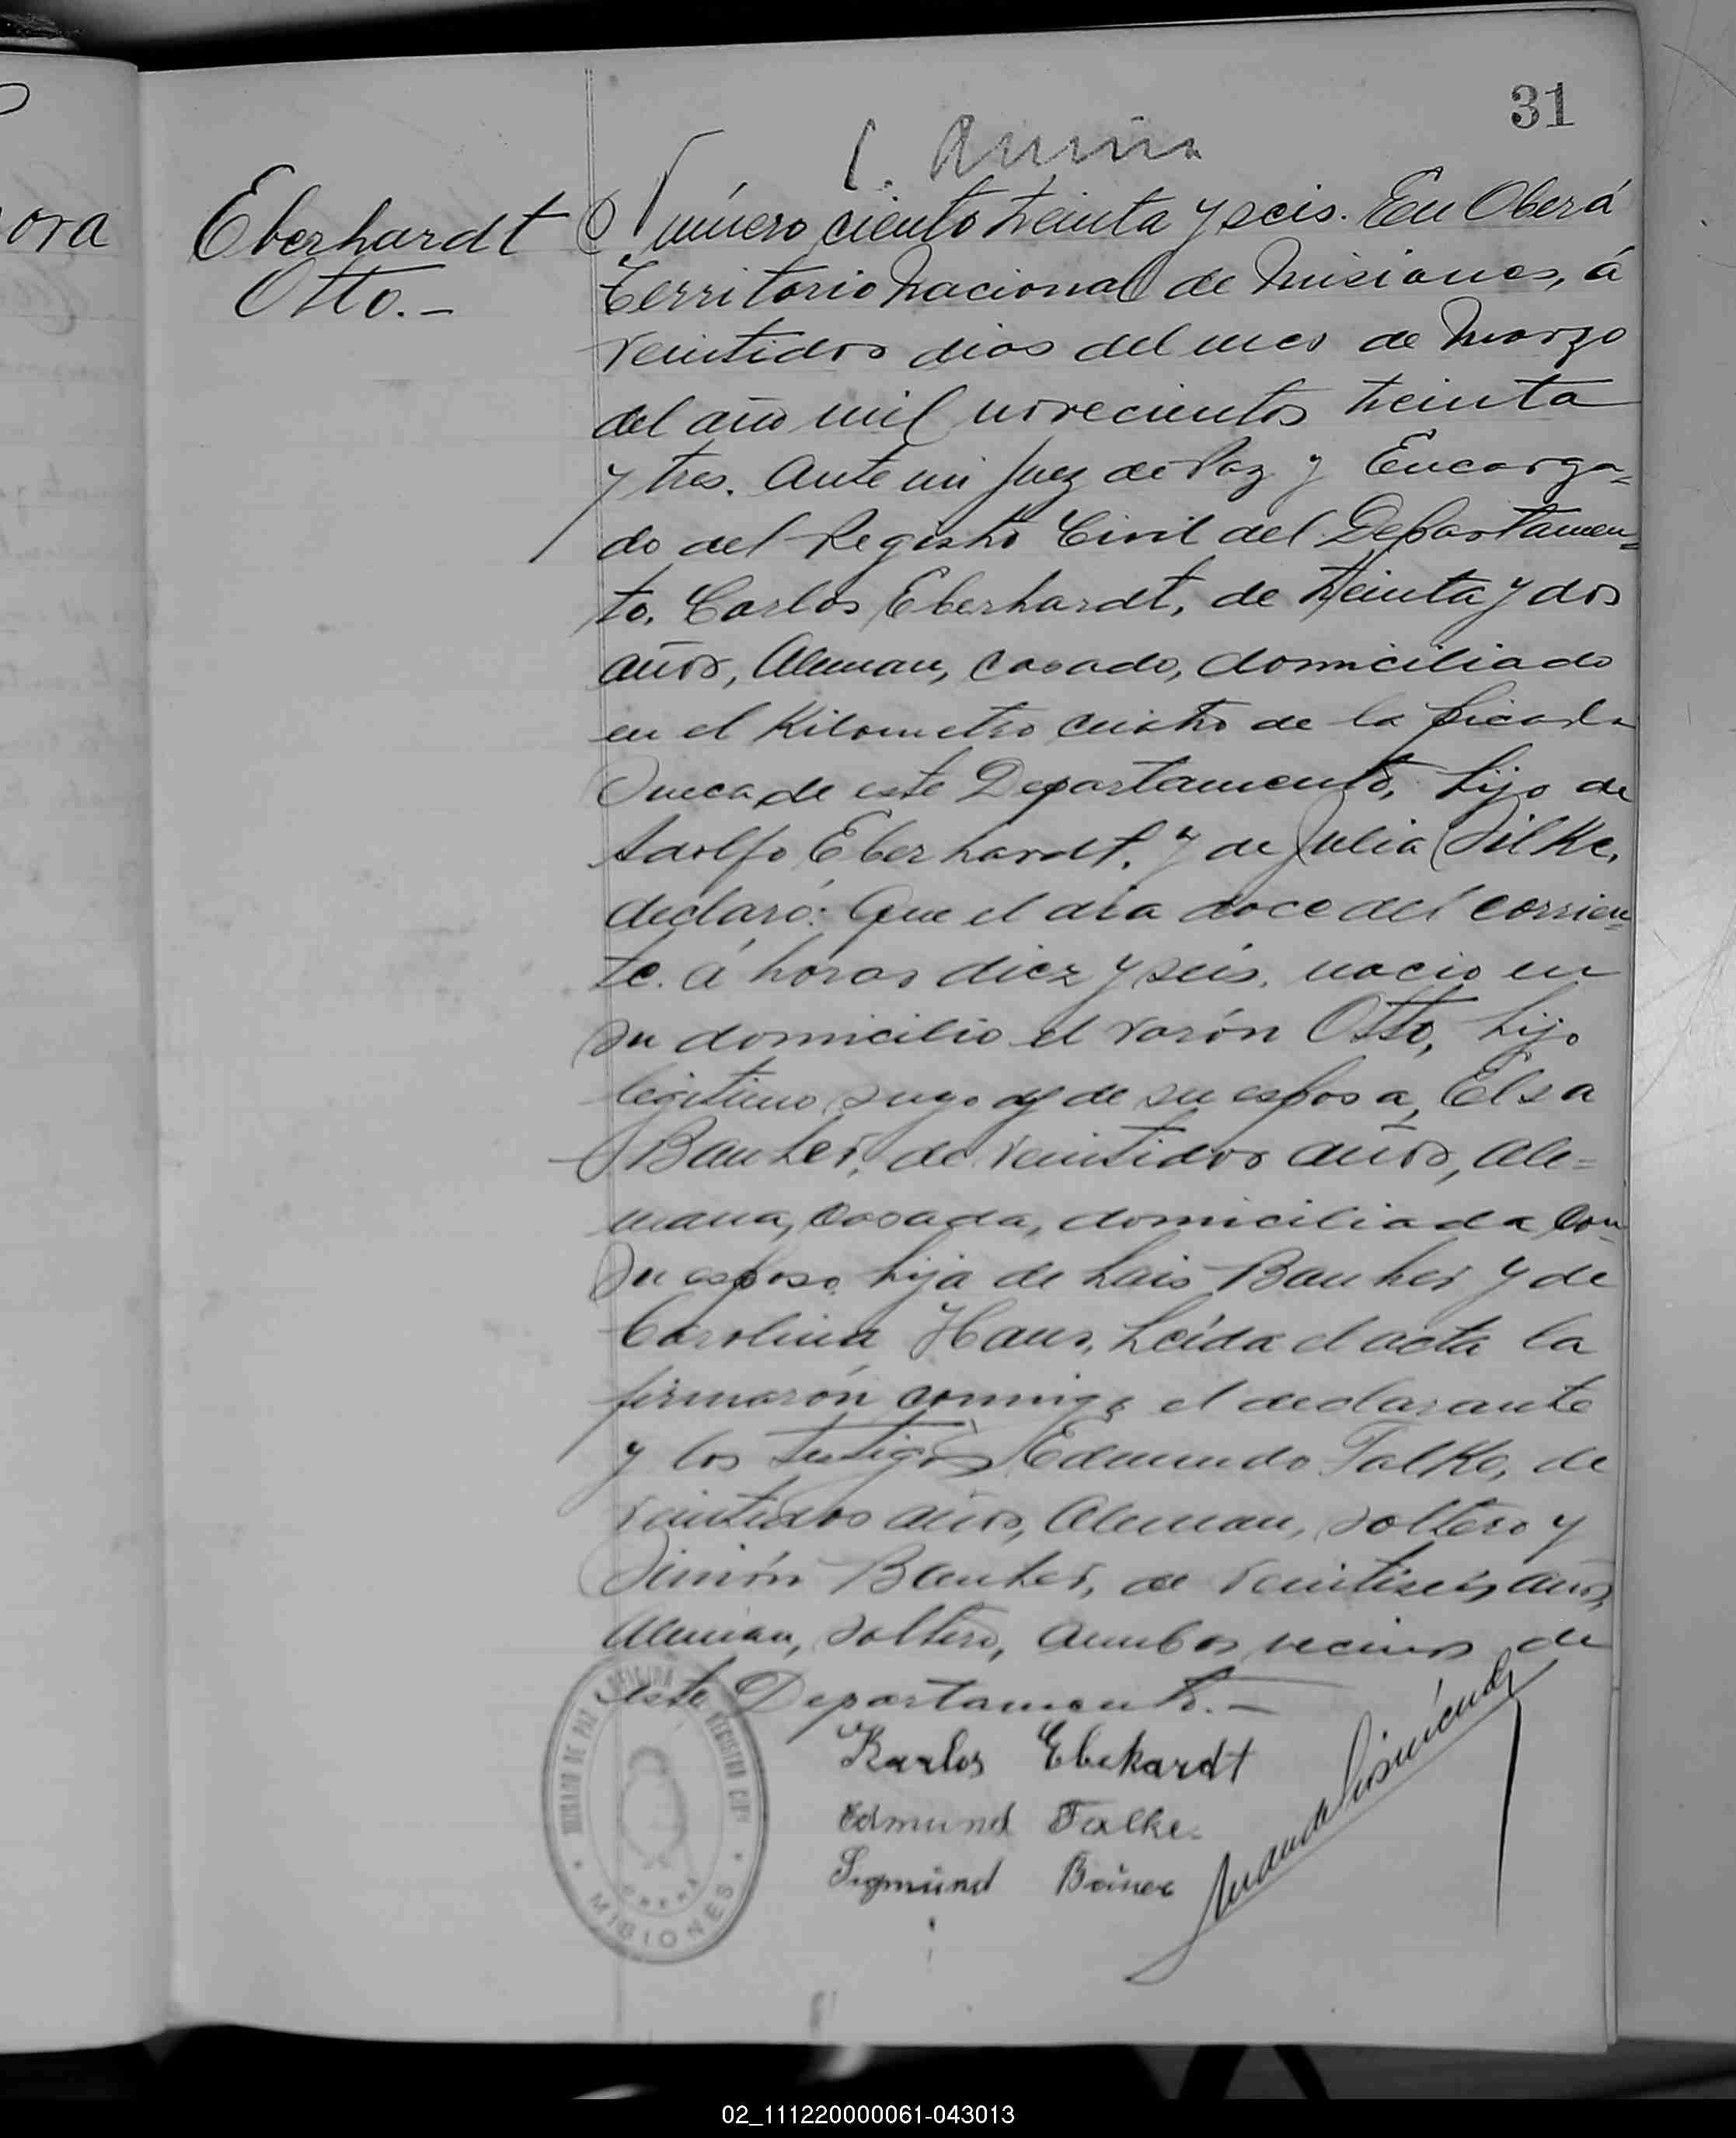 31
Eberhardt
Otto.-
ora
Número ciento treinta y seis. En Oberá
Territorio Nacional de Misiones, á
veintidos dias del mes de Marzo
del año mil novecientos treinta
y tres. Ante mi Juez de Paz y Encarga=
do del Registro Civil del Departamen=
to, Carlos Eberhardt, de treinta y dos
años, Aleman, casado, domiciliado
en el Kilometro cuatro de la picada
Sueca de este Departamento, hijo de
Adolfo Eberhardt, y de Julia Silke,
declaró: Que el dia doce del corrien=
te á horas diez y seis, nacio en
su domicilio el varón Otto, hijo
legitimo suyo y de su esposa, Elsa
Bauher, de veintidos años, Ale=
mana, casada, domiciliada con
su esposo, hija de Luis Bauher y de
Carolina Haus, Leída el acta la
firmarón conmigo el declarante
y los testigos Edmundo Falke, de
veintidos años, Aleman, soltero y
Simón Bauher, de veintiseis años,
Aleman, soltero, ambos vecinos de
este Departamento.-
Karlos Ebehardt
Edmund Falke.
Sigmund
JUZGADO DE PAZ Y OFICINA REGISTRO CIVIL
OBERA
MISIONES
02_111220000061-043013